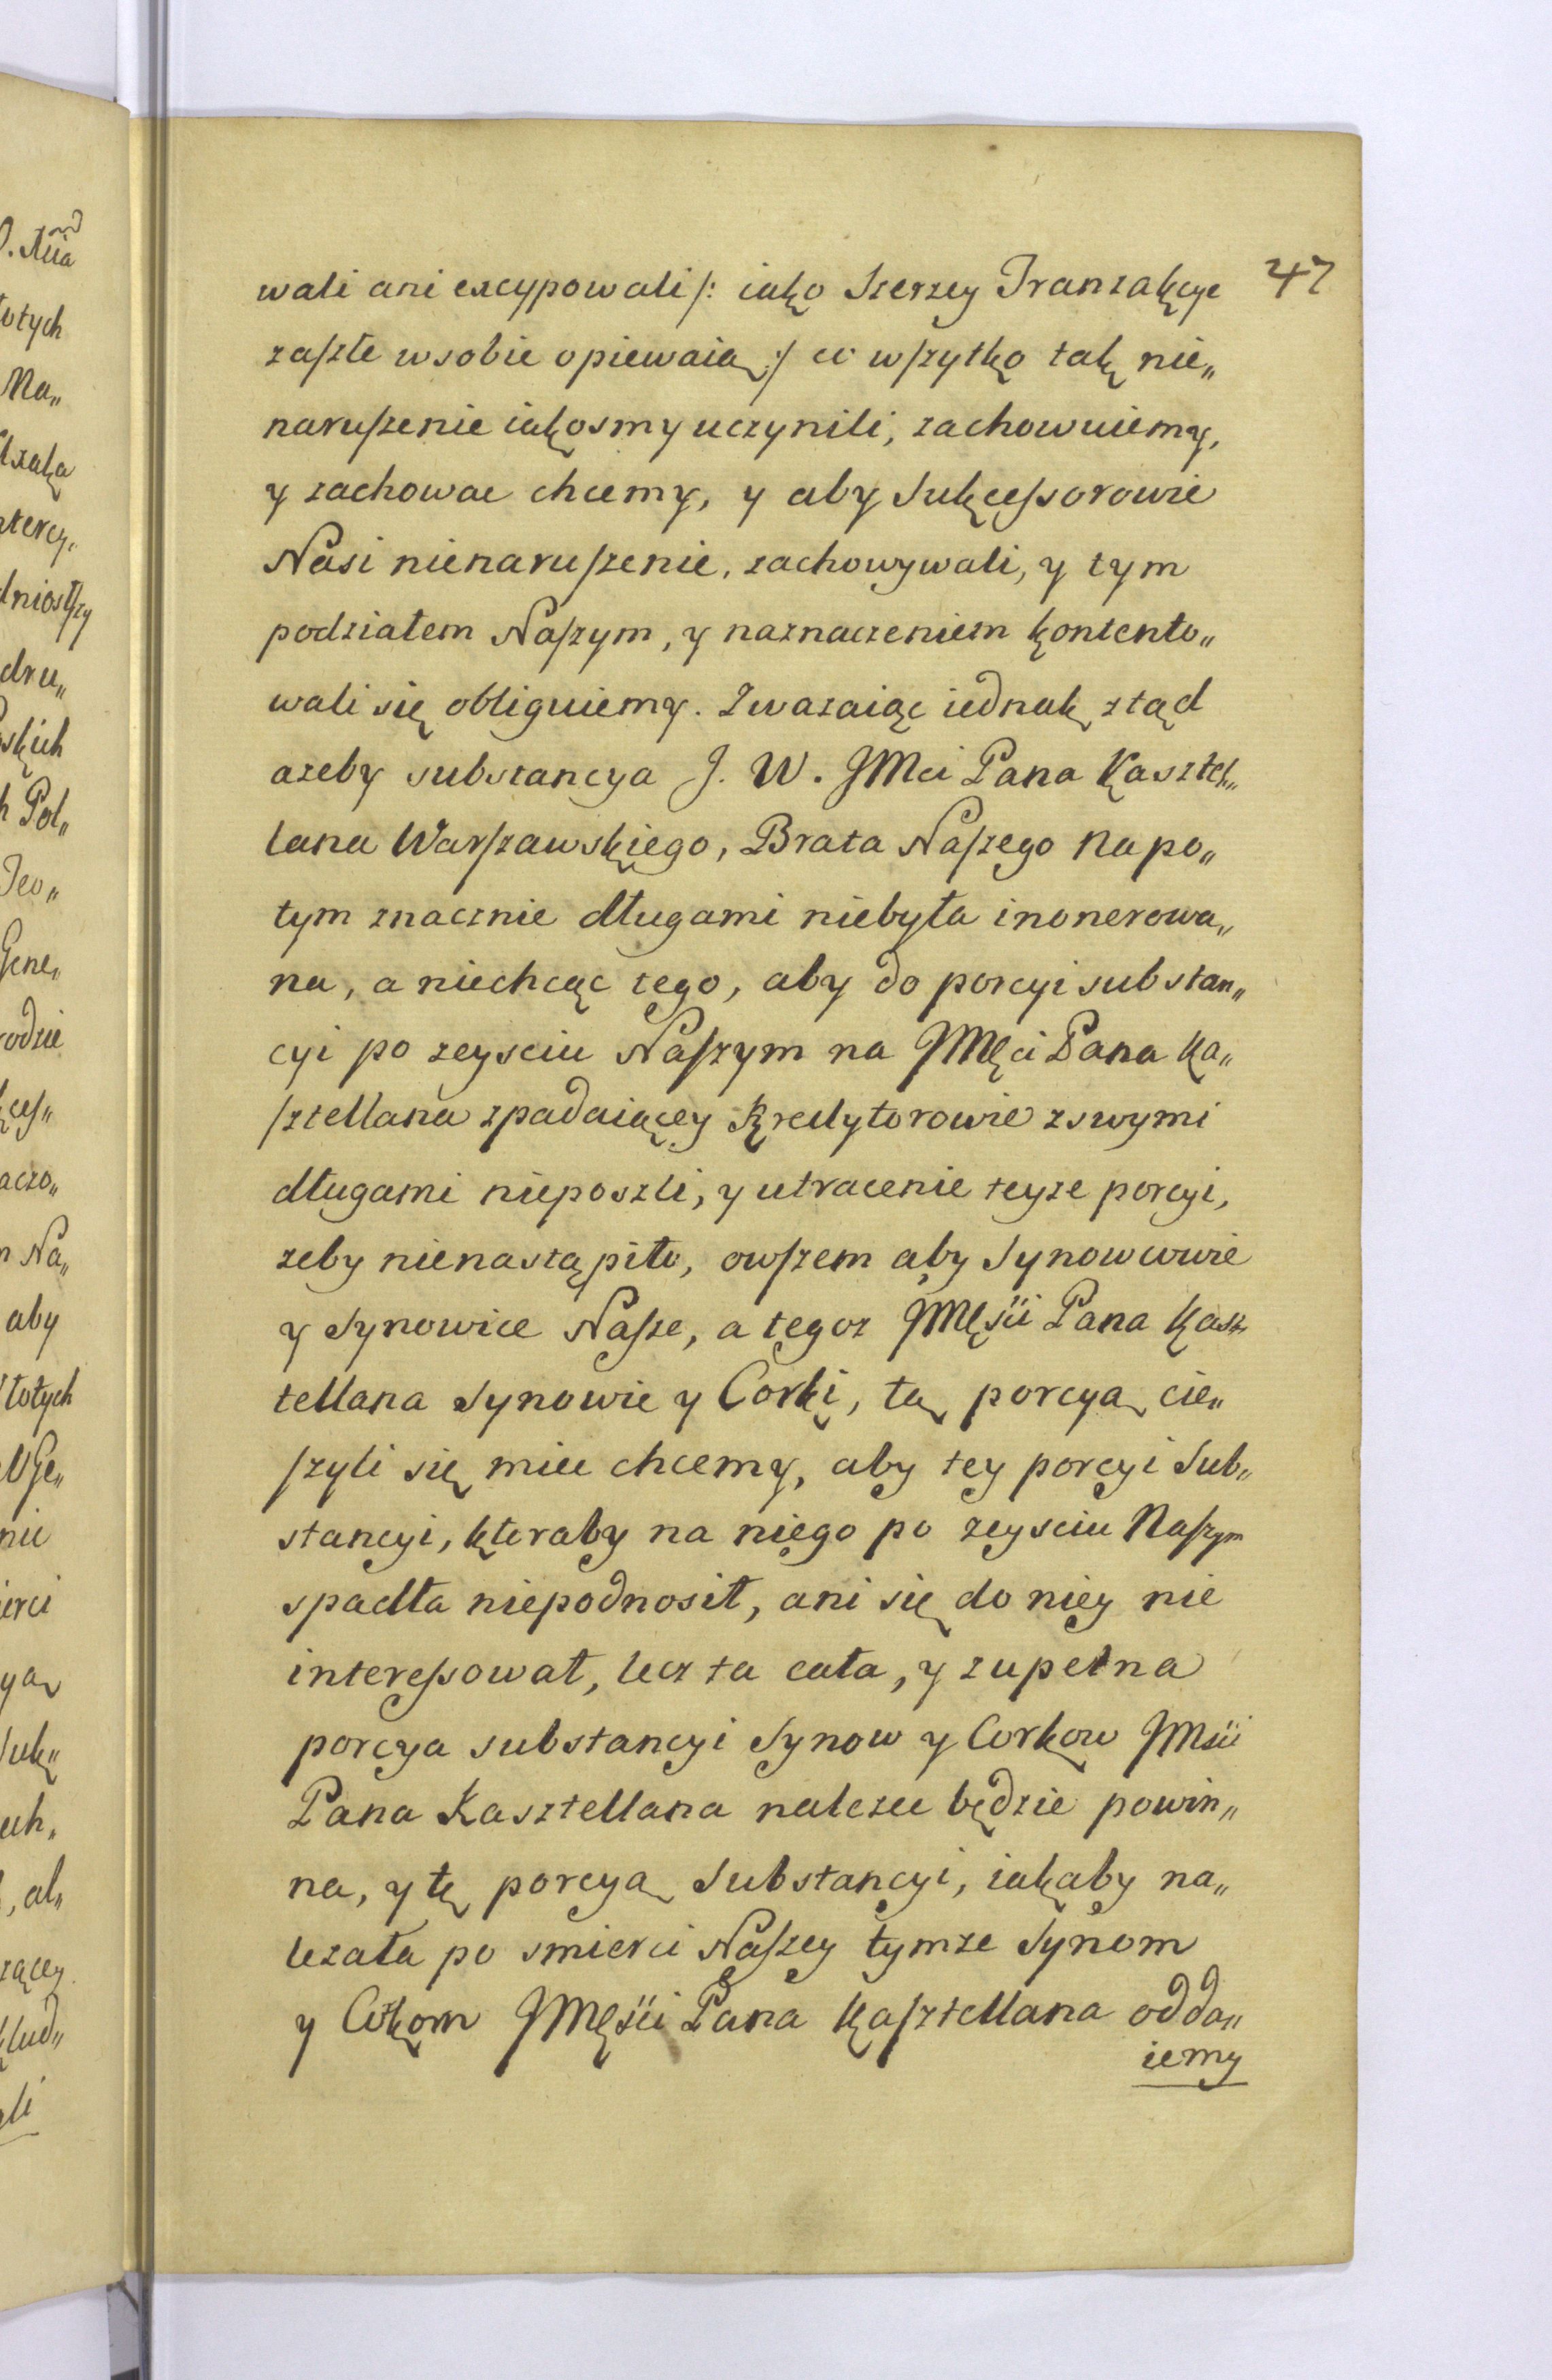 47
wali ani excypowali /: iako Szerzey Tranzakcye
zaszłe w sobie opiewaią :/ co wszytko tak nie„
naruszenie iakosmy uczynili, zachowuiemy,
y zachowac chcemy, y aby Sukcessorowie
Nasi nienaruszenie, zachowywali, y tym
podziałem Naszym, y naznaczeniem kontento„
wali się obliguiemy. Zwazaiąc iednak ztąd
azeby substancya J. W. JMci Pana Kasztel„
lana Warszawskiego, Brata Naszego na po„
tym znacznie długami niebyła inonerowa„
na, a niechcąc tego, aby do porcyi substan„
cyi po zeysciu Naszym na JMci Pana Ka„
sztellana zpadaiącey Kredytorowie z swymi
długami nieposzli, y utracenie teyze porcyi,
zeby nienastąpiło, owszem aby Synowcowie
y Synowice Nasze, a tegoz JMsci Pana Kasz
tellana Synowie y Corki, tą porcyą cie„
szyli się miec chcemy, aby tey porcyi Sub„
stancyi, ktoraby na niego po zeysciu Naszym
spadła niepodnosił, ani się do niey nie
interessował, lecz ta cała, y zupełna
porcya substancyi Synow y Corkow JMsci
Pana Kasztellana nalezec będzie powin„
na, y tę porcyą Substancyi, iakaby na„
lezała po smierci Naszey tymze Synom
y Corkom JMsci Pana Kasztellana odda„
iemy